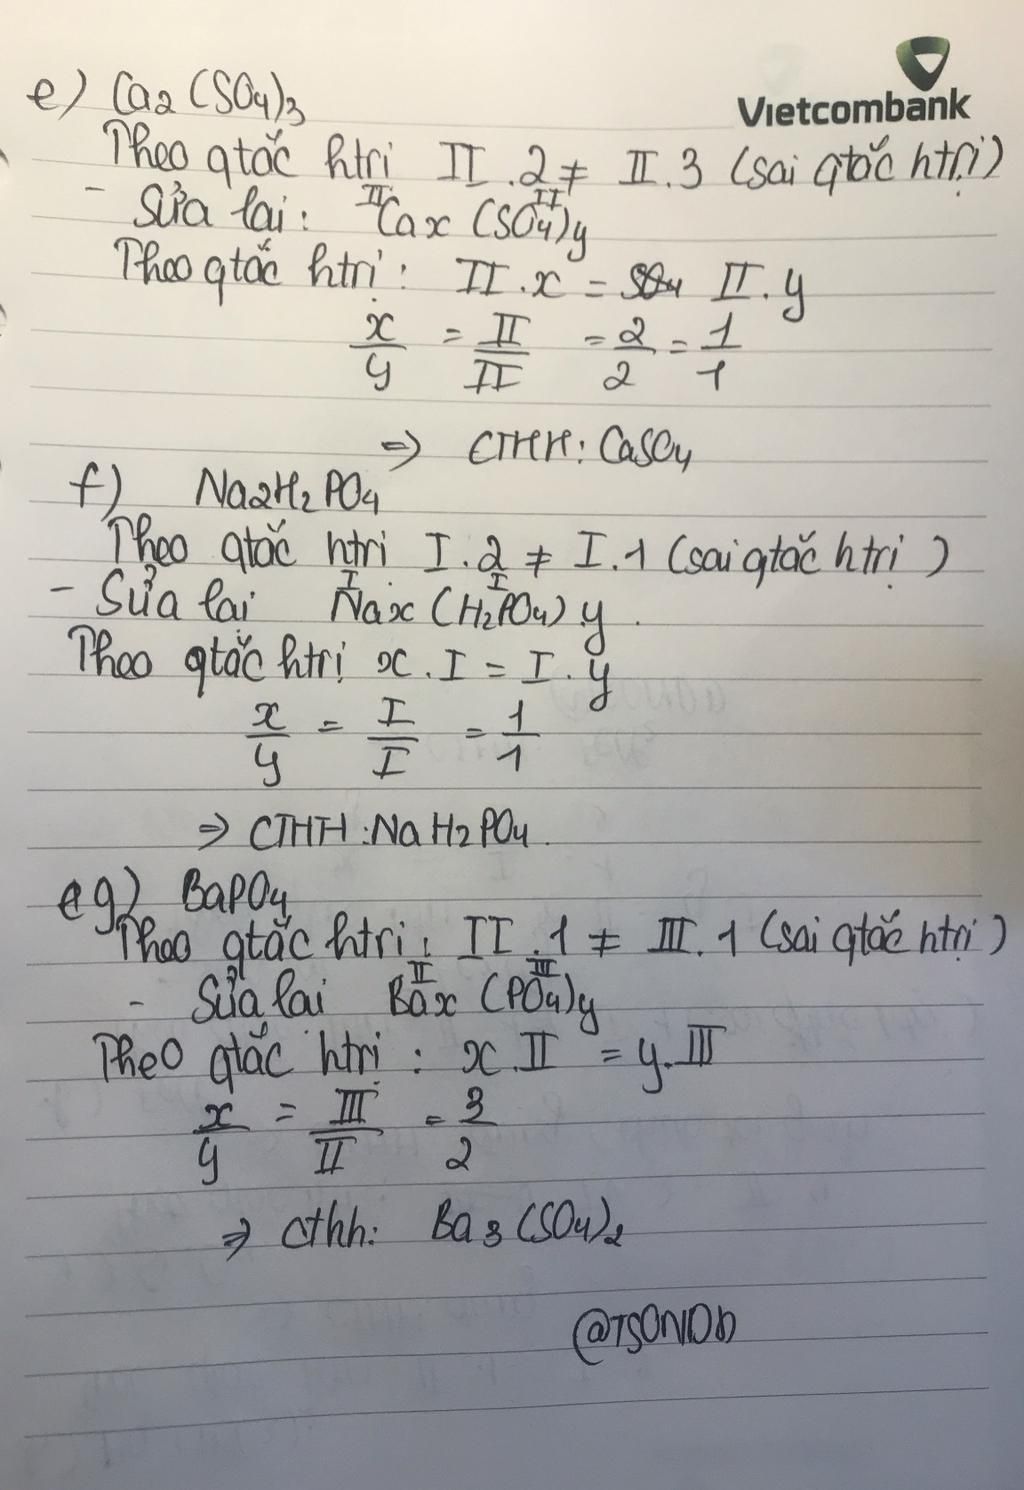 Vietcombank
e) Ca2 (SO4)3
Theo qtắc htrị II.2 ≠ II.3 (sai qtắc htrị)
- Sửa lại: Cax (SO4)y
II II
Theo qtắc htrị: II.x = II.y
x/y = II/II = 2/2 = 1/1
=> CTHH: CaSO4
f) Na2H2PO4
Theo qtắc htrị I.2 ≠ I.1 (sai qtắc htrị)
I I
- Sửa lại Nax (H2PO4)y.
Theo qtắc htrị x.I = I.y
x/y = I/I = 1/1
=> CTHH: NaH2PO4.
g) BaPO4
Theo qtắc htri: II.1 ≠ III.1 (sai qtắc htrị)
II III
- Sửa lại Bax (PO4)y
Theo qtắc htrị: x.II = y.III
x/y = III/II = 3/2
=> Cthh: Ba3(SO4)2